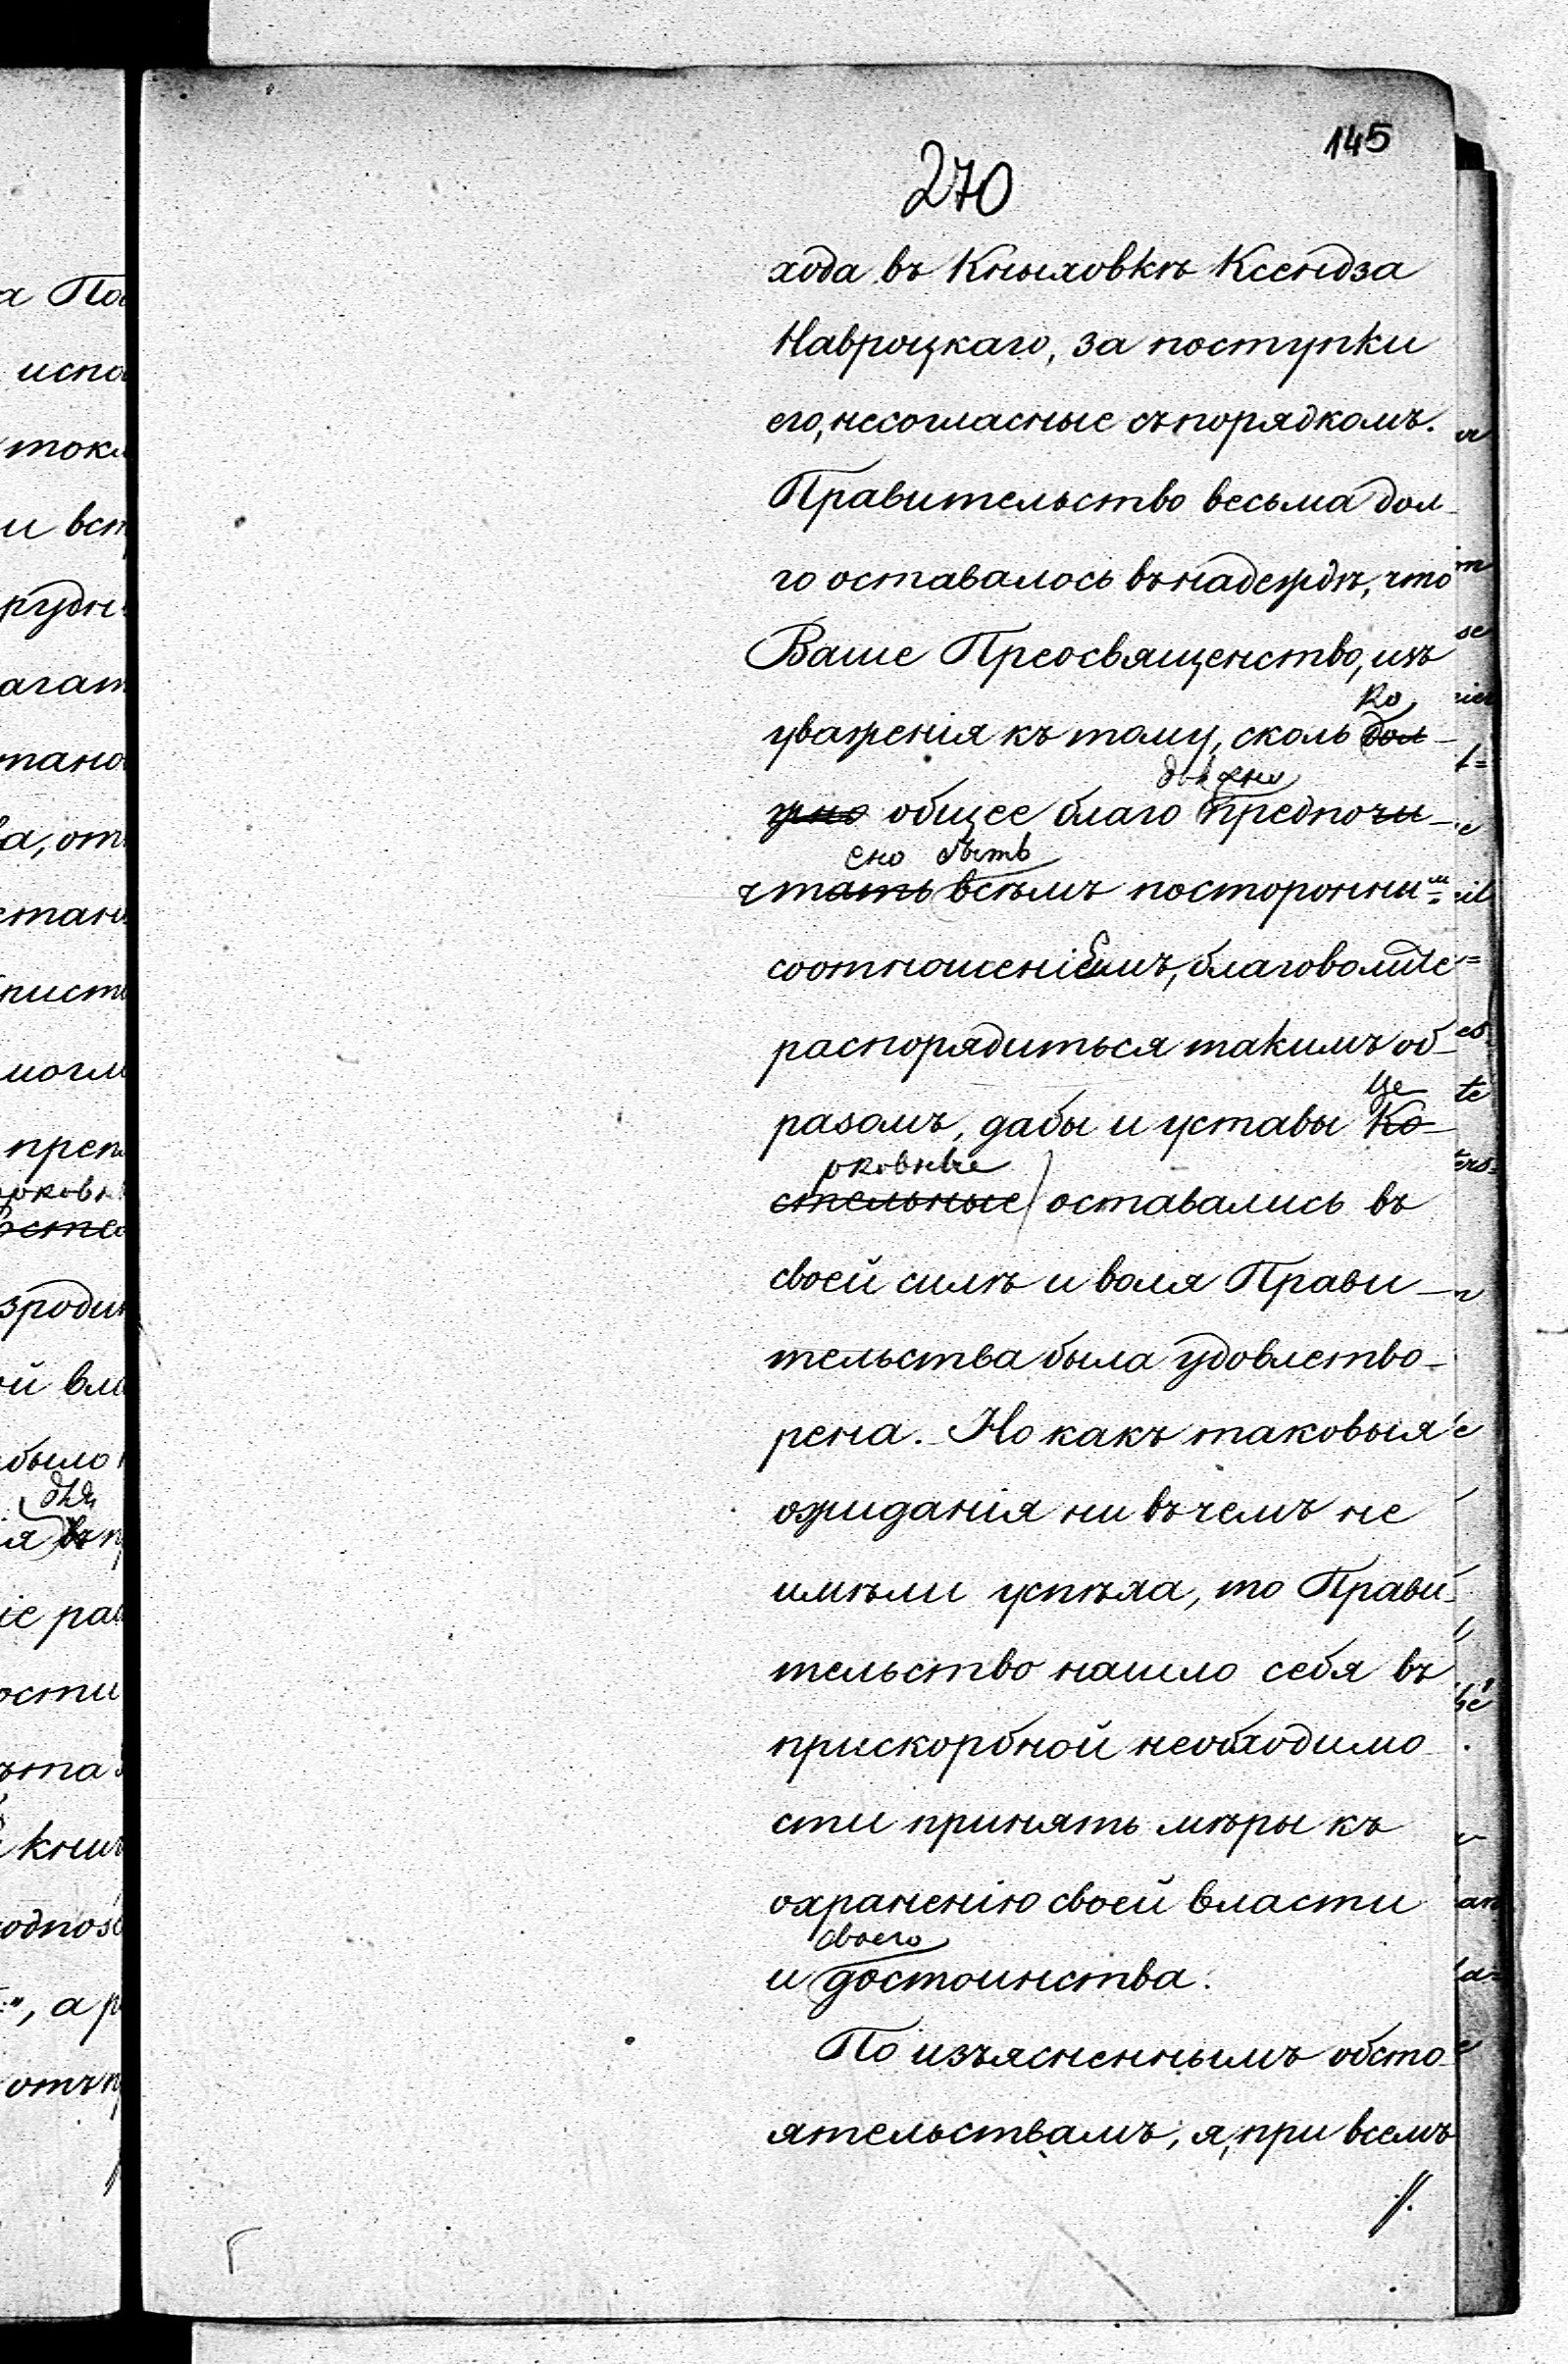 145
270
хода въ Княховкѣ Ксендза
Навроцкаго, за поступки
его, несогласные съ порядкомъ.
Правительство весьма дол-
го оставалось въ надеждѣ, что
Ваше Преосвященство, изъ
ко
уваженія къ тому, сколь дол-
должно
жно общее благо предпочи-
ено быть
чтать всѣмъ посторонни
соотношеніемъ, благоволите
распорядиться такимъ об-
це
разомъ, дабы и уставы Ко-
рковные
стельные оставались въ
своей силѣ и воля Прави-
тельства была удовлетво-
рена. Но какъ таковыя
ожиданія ни въ чемъ не
имѣли успѣха, то Прави-
тельство нашло себя въ
прискорбной необходимо
сти принять мѣры къ
охраненію своей власти
своего
и достоинства.
По изъясненнымъ обсто-
ятельствамъ, я, при всемъ